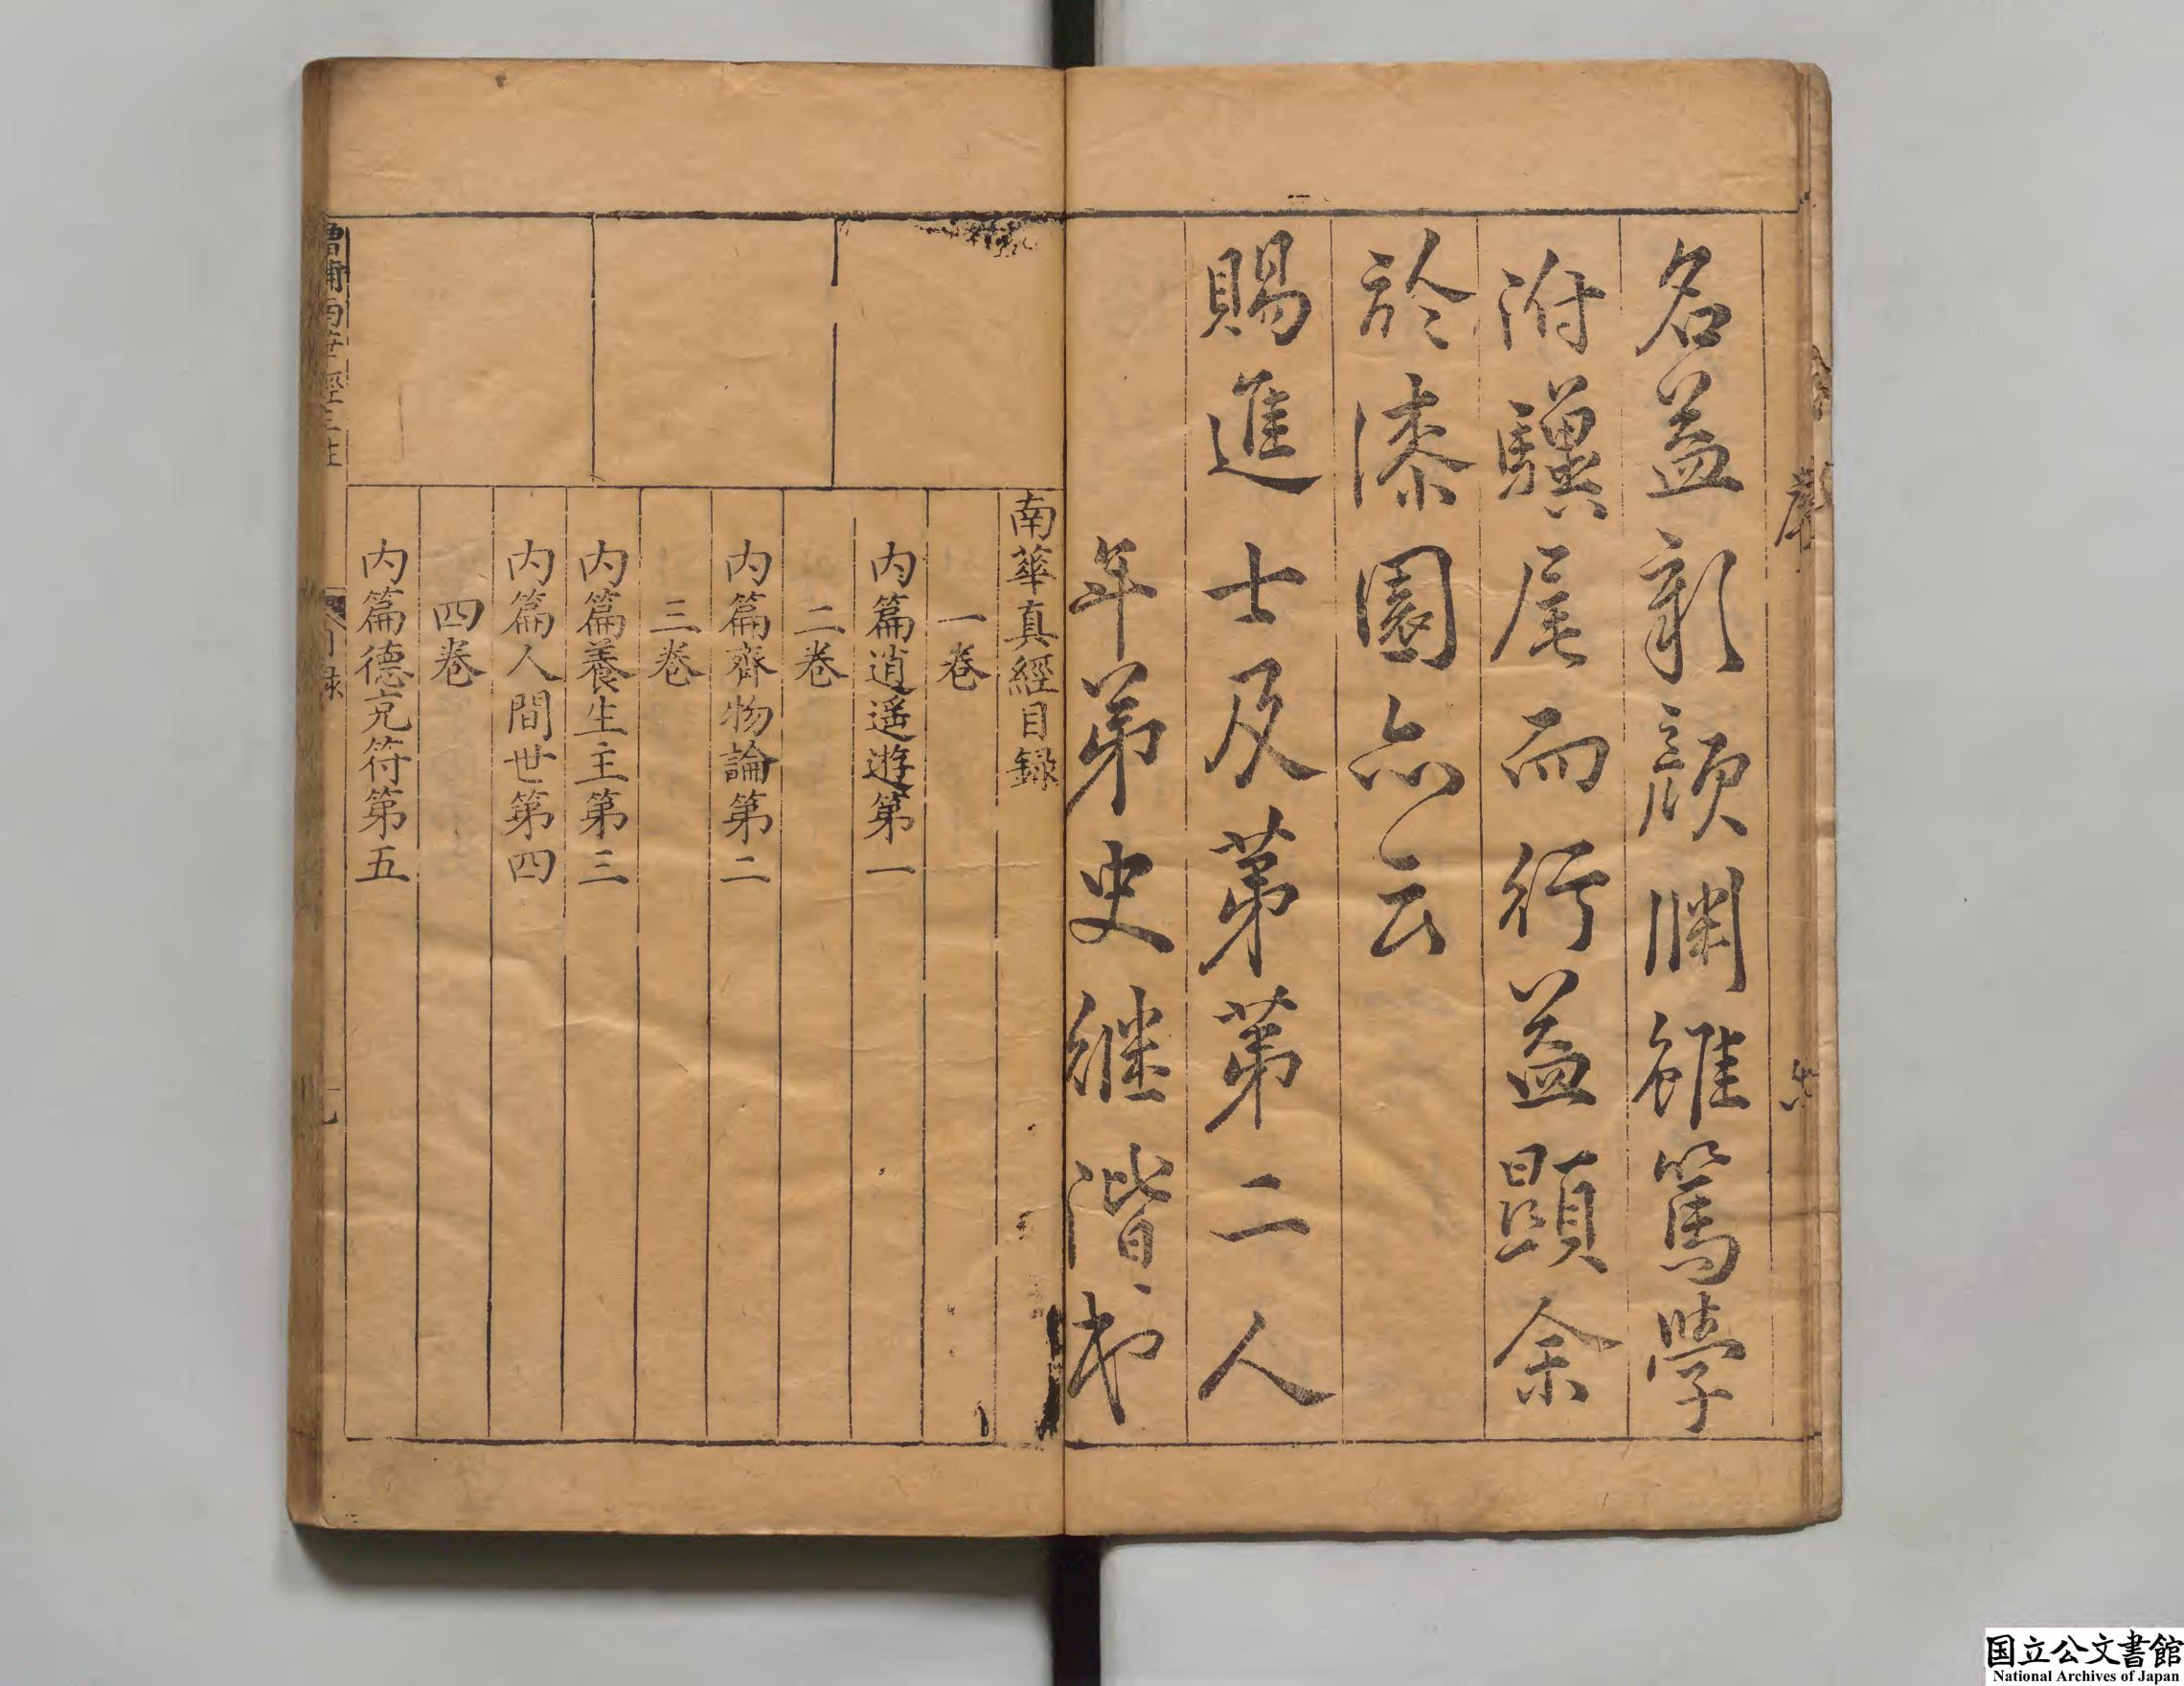 名益彰顔淵雖篤學
附驥尾而行益顯余
於漆園亦云
賜進士及第第二人
年弟史繼偕書
南華真經目録
一卷
内篇逍遥遊第一
二卷
内篇齊物論第二
三卷
内篇養生主第三
内篇人間世第四
四卷
内篇德充符第五
目録
国立公文書館
National Archives of Japan